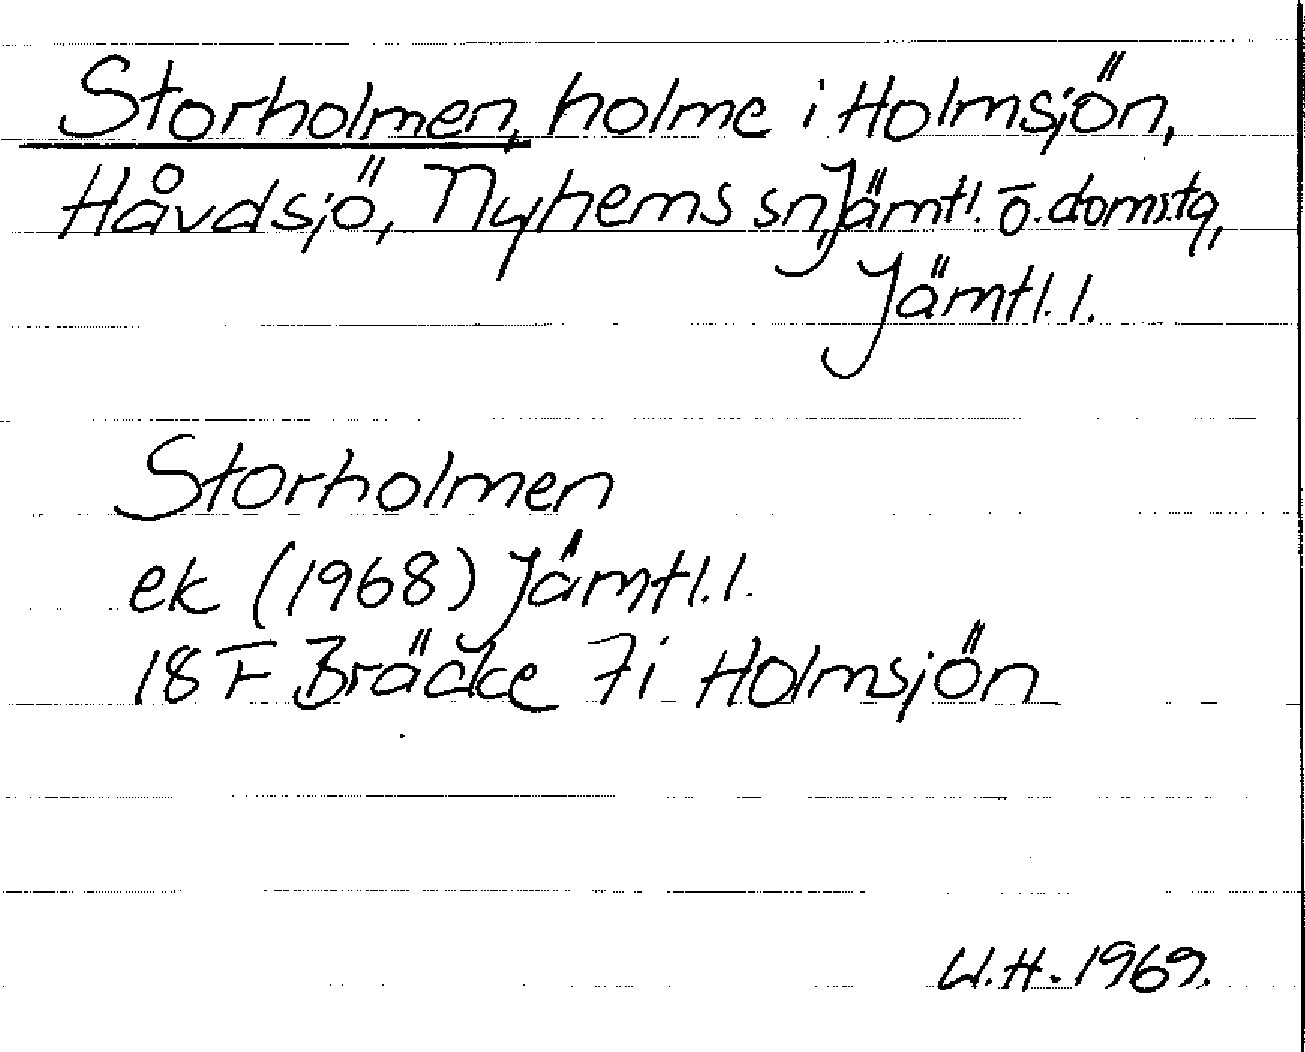 Storholmen, holme i Holmsjön,
Håvdsjö, Nyhems sn, Jämtl. ö. doms.tg,
Jämtl. l.
Storholmen
ek (1968) Jämtl. l.
18 F Bräcke 7i Holmsjön
W.H. 1969.